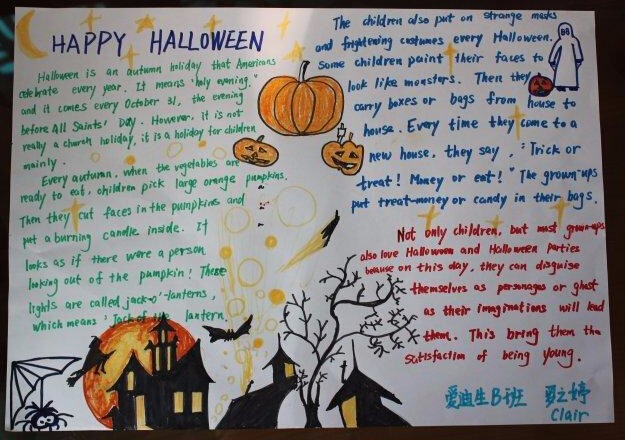 HAPPY HALLOWEEN
Halloween is an autumn holiday that Americans
celebrate every year. It means "holy evening,"
and it comes every October 31, the evening
before All Saints' Day. However, it is not
really a church holiday, it is a holiday for children
mainly.
Every autumn, when the vegetables are
ready to eat, children pick large orange pumpkins.
Then they cut faces in the pumpkins and
put a burning candle inside. It
looks as if there were a person
looking out of the pumpkin! These
lights are called jack-o'-lanterns,
which means "Jack of the lantern.
The children also put on strange masks
and frightening costumes every Halloween.
Some children paint their faces to
look like monsters. Then they
carry boxes or bags from house to
house. Every time they come to a
new house, they say, "Trick or
treat! Money or eat!" The grown-ups
put treat-money or candy in their bags.
Not only children, but most grown-ups
also love Halloween and Halloween parties
because on this day, they can disguise
themselves as personages or ghost
as their imaginations will lead
them. This bring them the
satisfaction of being young.
爱迪生B班 之婷
Clair